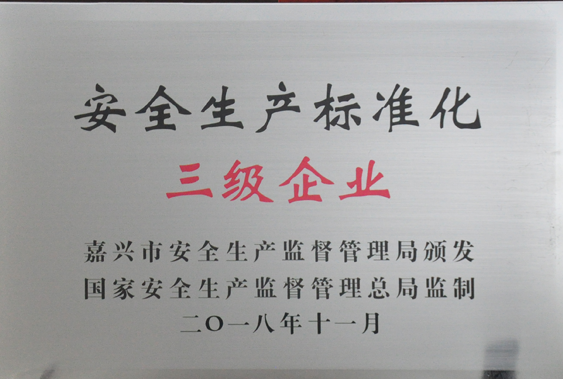 安全生产标准化
三级企业
嘉兴市安全生产监督管理局颁发
国家安全生产监督管理总局监制
二〇一八年十一月